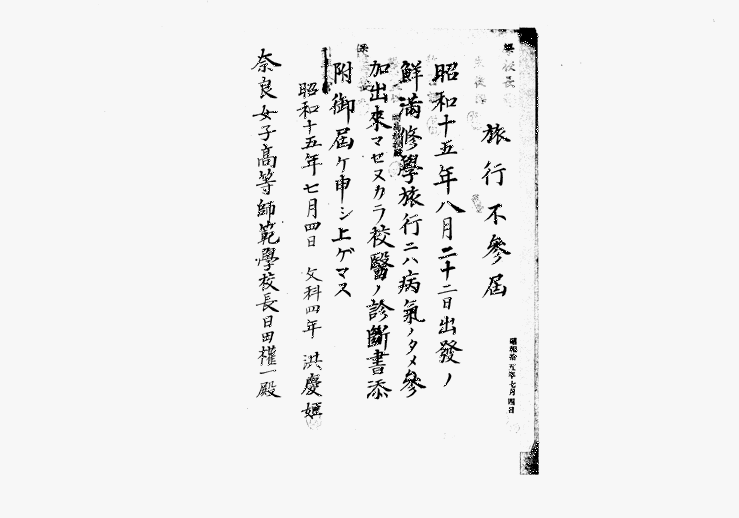 旅行不參屆
昭和十五年八月二十二日出發ノ
鮮滿修學旅行ニハ病氣ノタメ參
加出來マセヌカラ校醫ノ診斷書添
附御屆ケ申シ上ゲマス
昭和十五年七月四日 文科四年 洪慶姬
奈良女子高等師範學校長日田權一殿
昭和拾五年七月四日